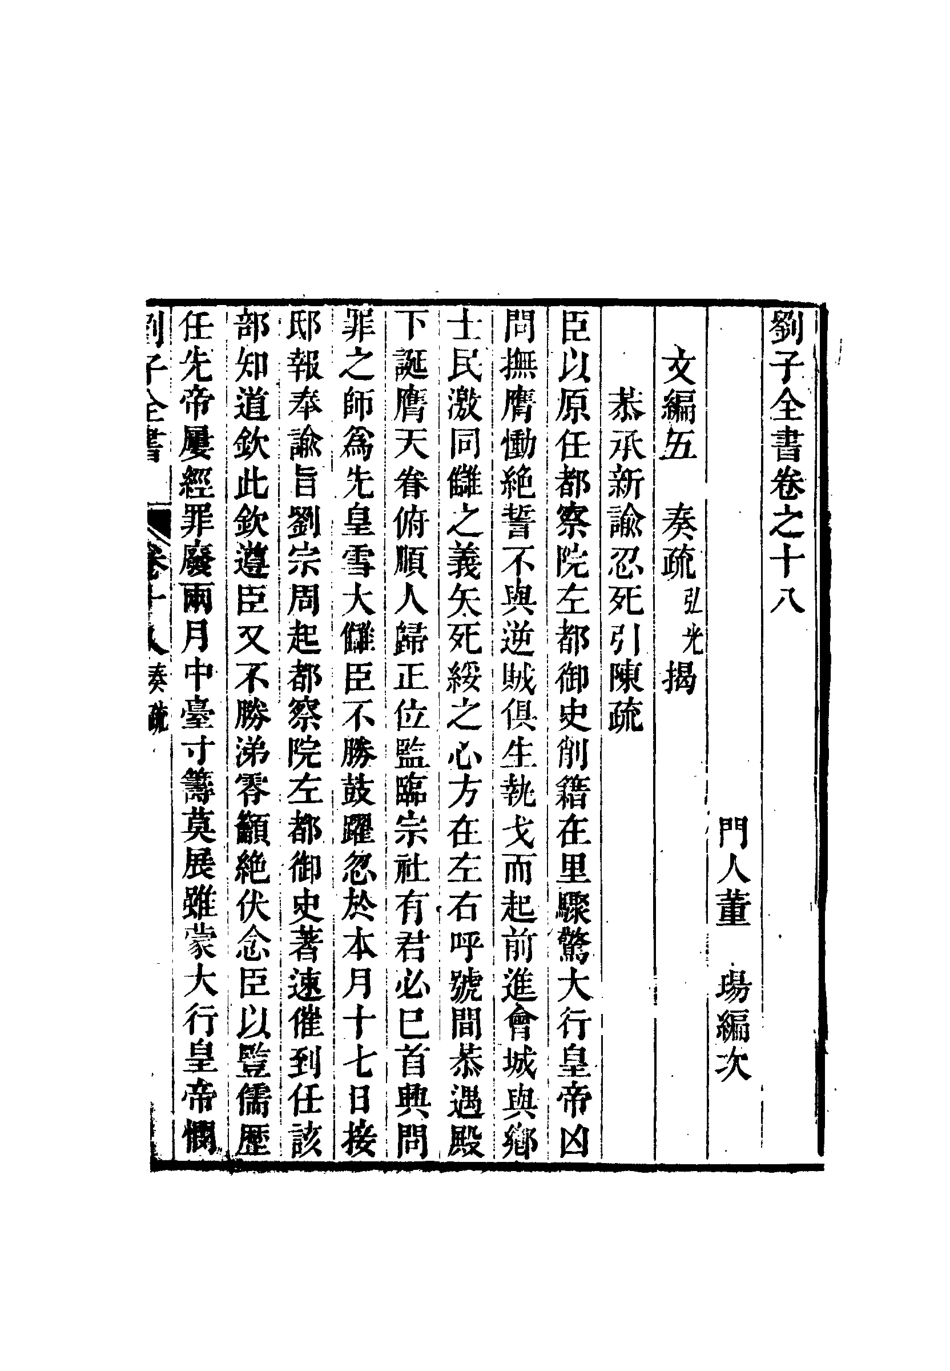 劉子全書卷之十八
門人董　瑒編次
文編五　奏疏弘光揭
恭承新諭忍死引陳疏
臣以原任都察院左都御史削籍在里驟驚大行皇帝凶
問撫膺慟絶誓不與逆賊俱生執戈而起前進會城與鄉
士民激同讎之義矢死綏之心方在左右呼號間恭遇殿
下誕膺天眷俯順人歸正位監臨宗社有君必巳首興問
罪之師爲先皇雪大讎臣不勝鼓躍忽於本月十七日接
邸報奉諭旨劉宗周起都察院左都御史著速催到任該
部知道欽此欽遵臣又不勝涕零籲絶伏念臣以豎儒歷
任先帝屢經罪廢兩月中臺寸籌莫展雖蒙大行皇帝憫
劉子全書　卷十八奏疏